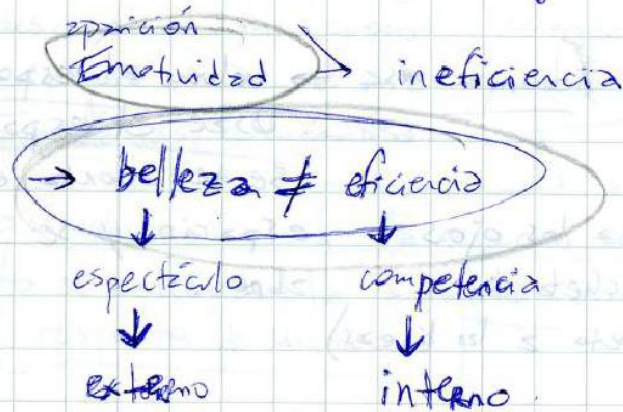 aparición
Emotividad > ineficiencia
→ belleza ≠ eficiencia
↓ ↓
espectáculo competencia
↓ ↓
externo interno